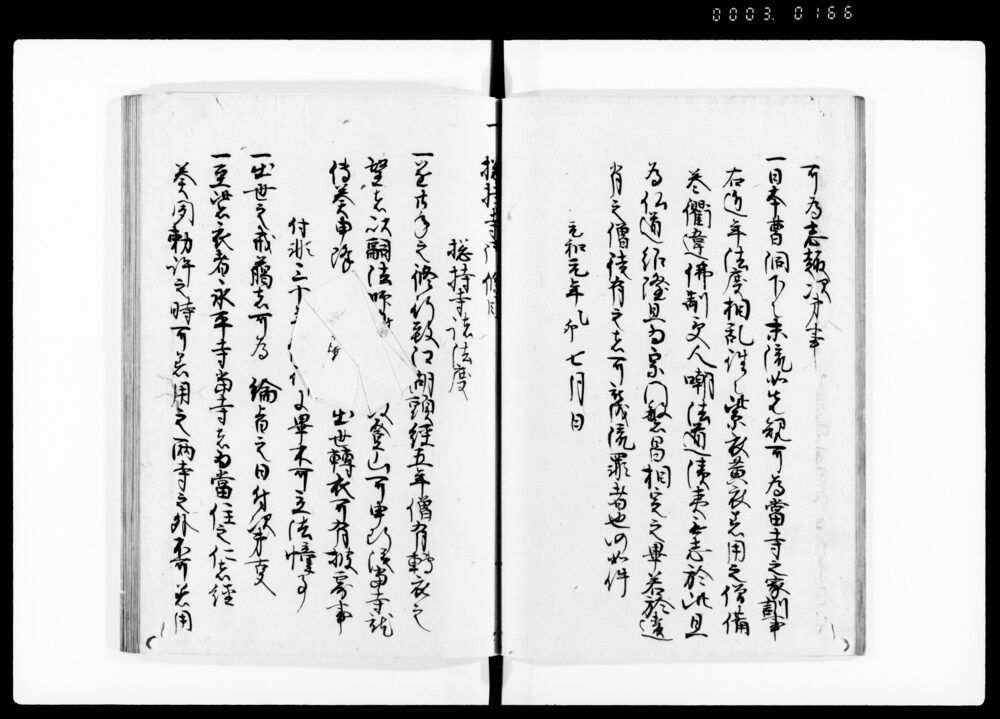 0003. 0166
可為志趣次第事
一日本曹洞下之末流如先規可為當寺之家訓事
右近年法度相乱誰々紫衣黄衣着用之僧備
巷衢違佛制受人嘲法道漬夷無甚於此且
為仏道紹隆且為宗門繁昌相定之畢若於違
背之僧徒有之者可被處流罪者也仍如件
元和元年乙卯七月日
一 捴持寺
捴持寺諸法度
一至廿年之修行致江湖頭経五年僧有轉衣之
望者以嗣法師
以登山可申
當寺就
傳奏申
出世轉衣可有披露事
付
三十
畢不可立法幢事
一出世之戒﨟者可為 綸旨之日付次第事
一至紫衣者永平寺當寺者為當住之仁者経
奏聞勅許之時可着用之両寺之外不可着用